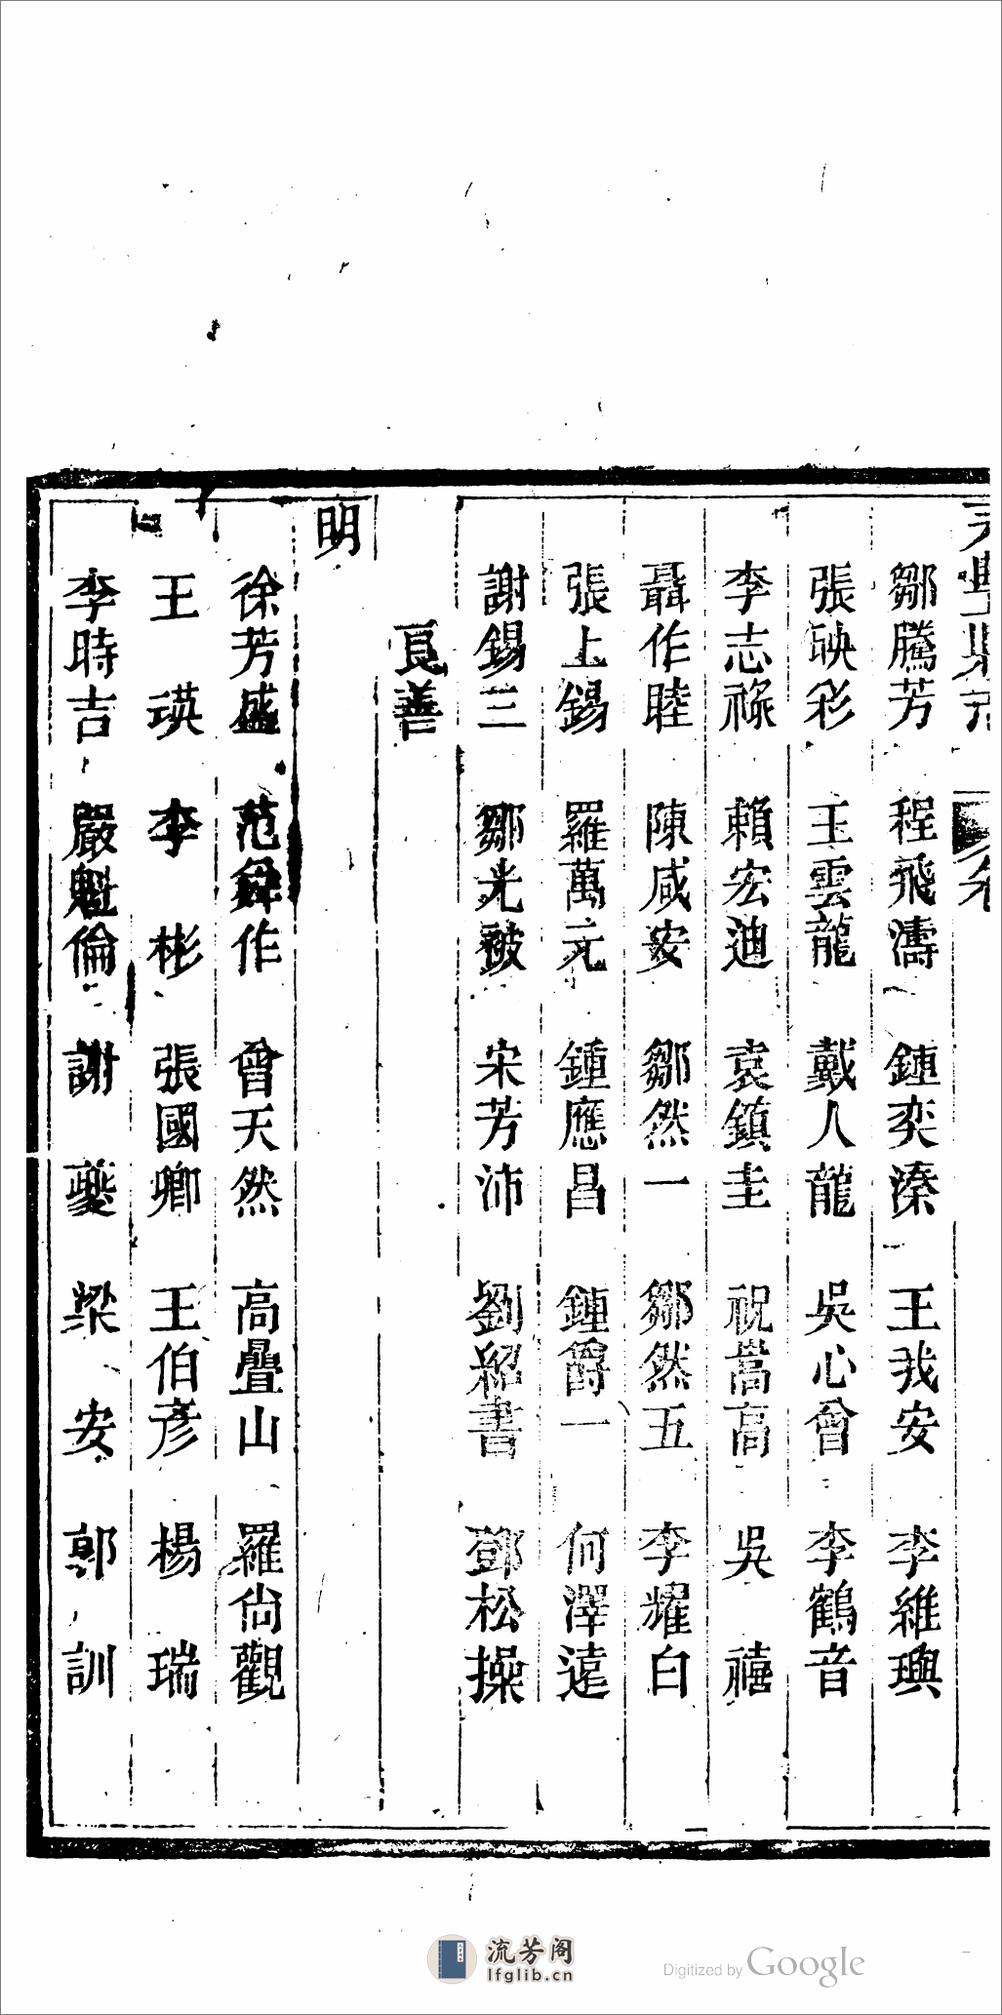 鄒騰芳 程飛濤 鍾奕溱 王我安 李維璵
張映彩 王雲龍 戴人龍 吳心曾 李鶴音
李志祿 賴宏迪 袁鎮圭 祝嵩高 吳禧
聶作睦 陳咸安 鄒然一 鄒然五 李耀白
張上錫 羅萬元 鍾應昌 鍾爵一 何澤遠
謝錫三 鄒光被 宋芳沛 劉紹書 鄧松操
良善
明
徐芳盛 范舜作 曾天然 高疊山 羅尙觀
王瑛 李彬 張國卿 王伯彥 楊瑞
李時吉 嚴魁倫 謝夔 梁安 郭訓
流芳阁
lfglib.cn
Digitized by Google